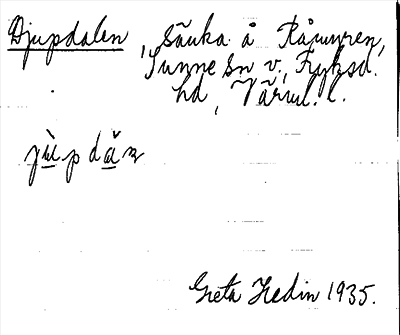 Djupdalen, Sänka å Råmmen,
Sunne sn v., Fryksd.
hd, Värml. l.
jùpdăn
Greta Hedin 1935.